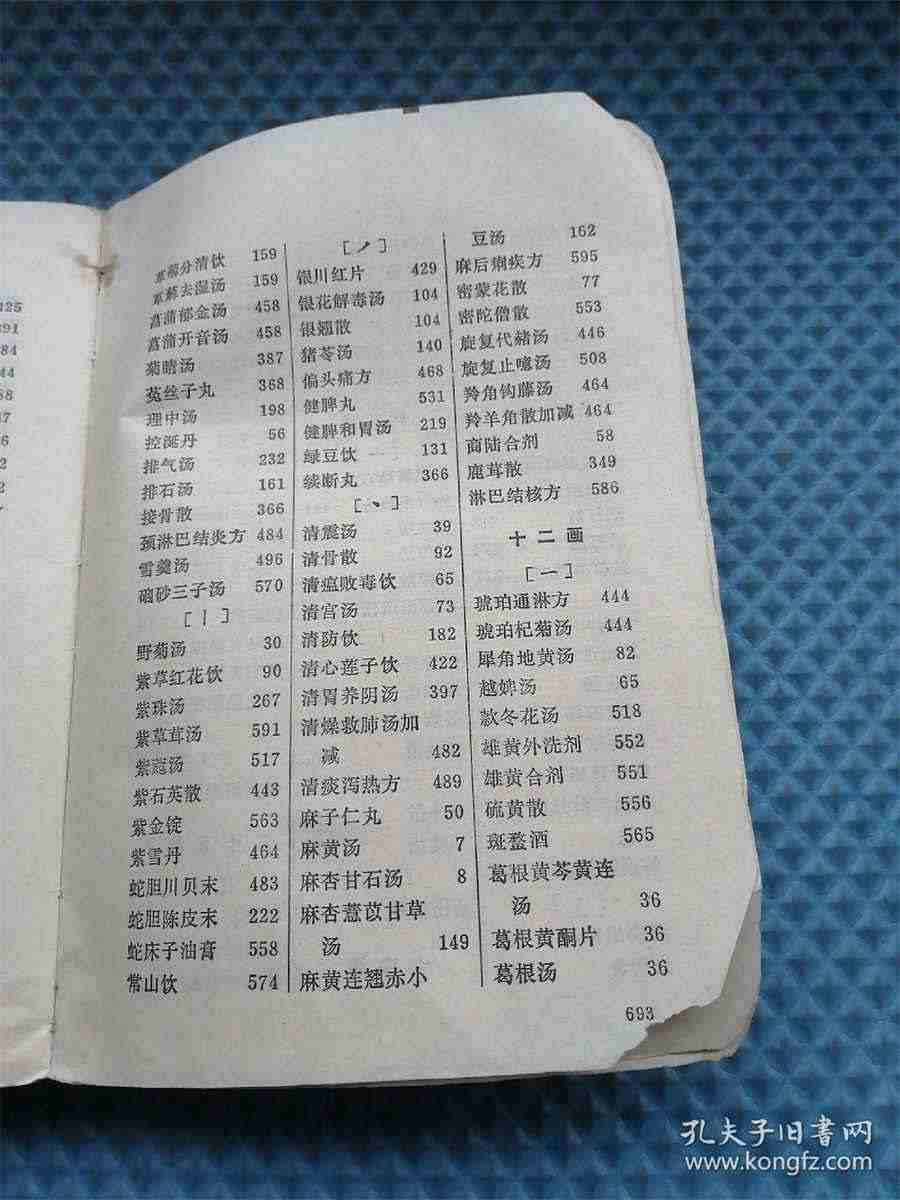 425
391
84
44
88
47
6
2
2
7
萆薢分清饮 159
萆薢去湿汤 159
菖蒲郁金汤 458
菖蒲开音汤 458
菊睛汤 387
菟丝子丸 368
理中汤 198
控涎丹 56
排气汤 232
排石汤 161
接骨散 366
颈淋巴结炎方 484
雪羹汤 496
硇砂三子汤 570
〔丨〕
野菊汤 30
紫草红花饮 90
紫珠汤 267
紫草茸汤 591
紫蔻汤 517
紫石英散 443
紫金锭 563
紫雪丹 464
蛇胆川贝末 483
蛇胆陈皮末 222
蛇床子油膏 558
常山饮 574
〔丿〕
银川红片 429
银花解毒汤 104
银翘散 104
猪苓汤 140
偏头痛方 468
健脾丸 531
健脾和胃汤 219
绿豆饮 131
续断丸 366
〔丶〕
清震汤 39
清骨散 92
清瘟败毒饮 65
清宫汤 73
清防饮 182
清心莲子饮 422
清胃养阴汤 397
清燥救肺汤加
减 482
清痰泻热方 489
麻子仁丸 50
麻黄汤 7
麻杏甘石汤 8
麻杏薏苡甘草
汤 149
麻黄连翘赤小
豆汤 162
麻后痢疾方 595
密蒙花散 77
密陀僧散 553
旋复代赭汤 446
旋复止噫汤 508
羚角钩藤汤 464
羚羊角散加减 464
商陆合剂 58
鹿茸散 349
淋巴结核方 586
十二画
〔一〕
琥珀通淋方 444
琥珀杞菊汤 444
犀角地黄汤 82
越婢汤 65
款冬花汤 518
雄黄外洗剂 552
雄黄合剂 551
硫黄散 556
斑蝥酒 565
葛根黄芩黄连
汤 36
葛根黄酮片 36
葛根汤 36
693
孔夫子旧书网
www.kongfz.com